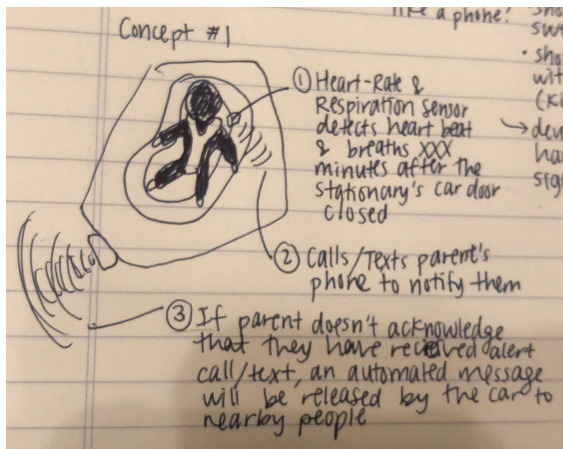 like a phone?
Concept #1
① Heart-Rate &
Respiration sensor
detects heart beat
& breaths XXX
minutes after the
stationary's car door
closed
② Calls/Texts parent's
phone to notify them
③ If parent doesn't acknowledge
that they have recieved alert
call/text, an automated message
will be released by the car to
nearby people